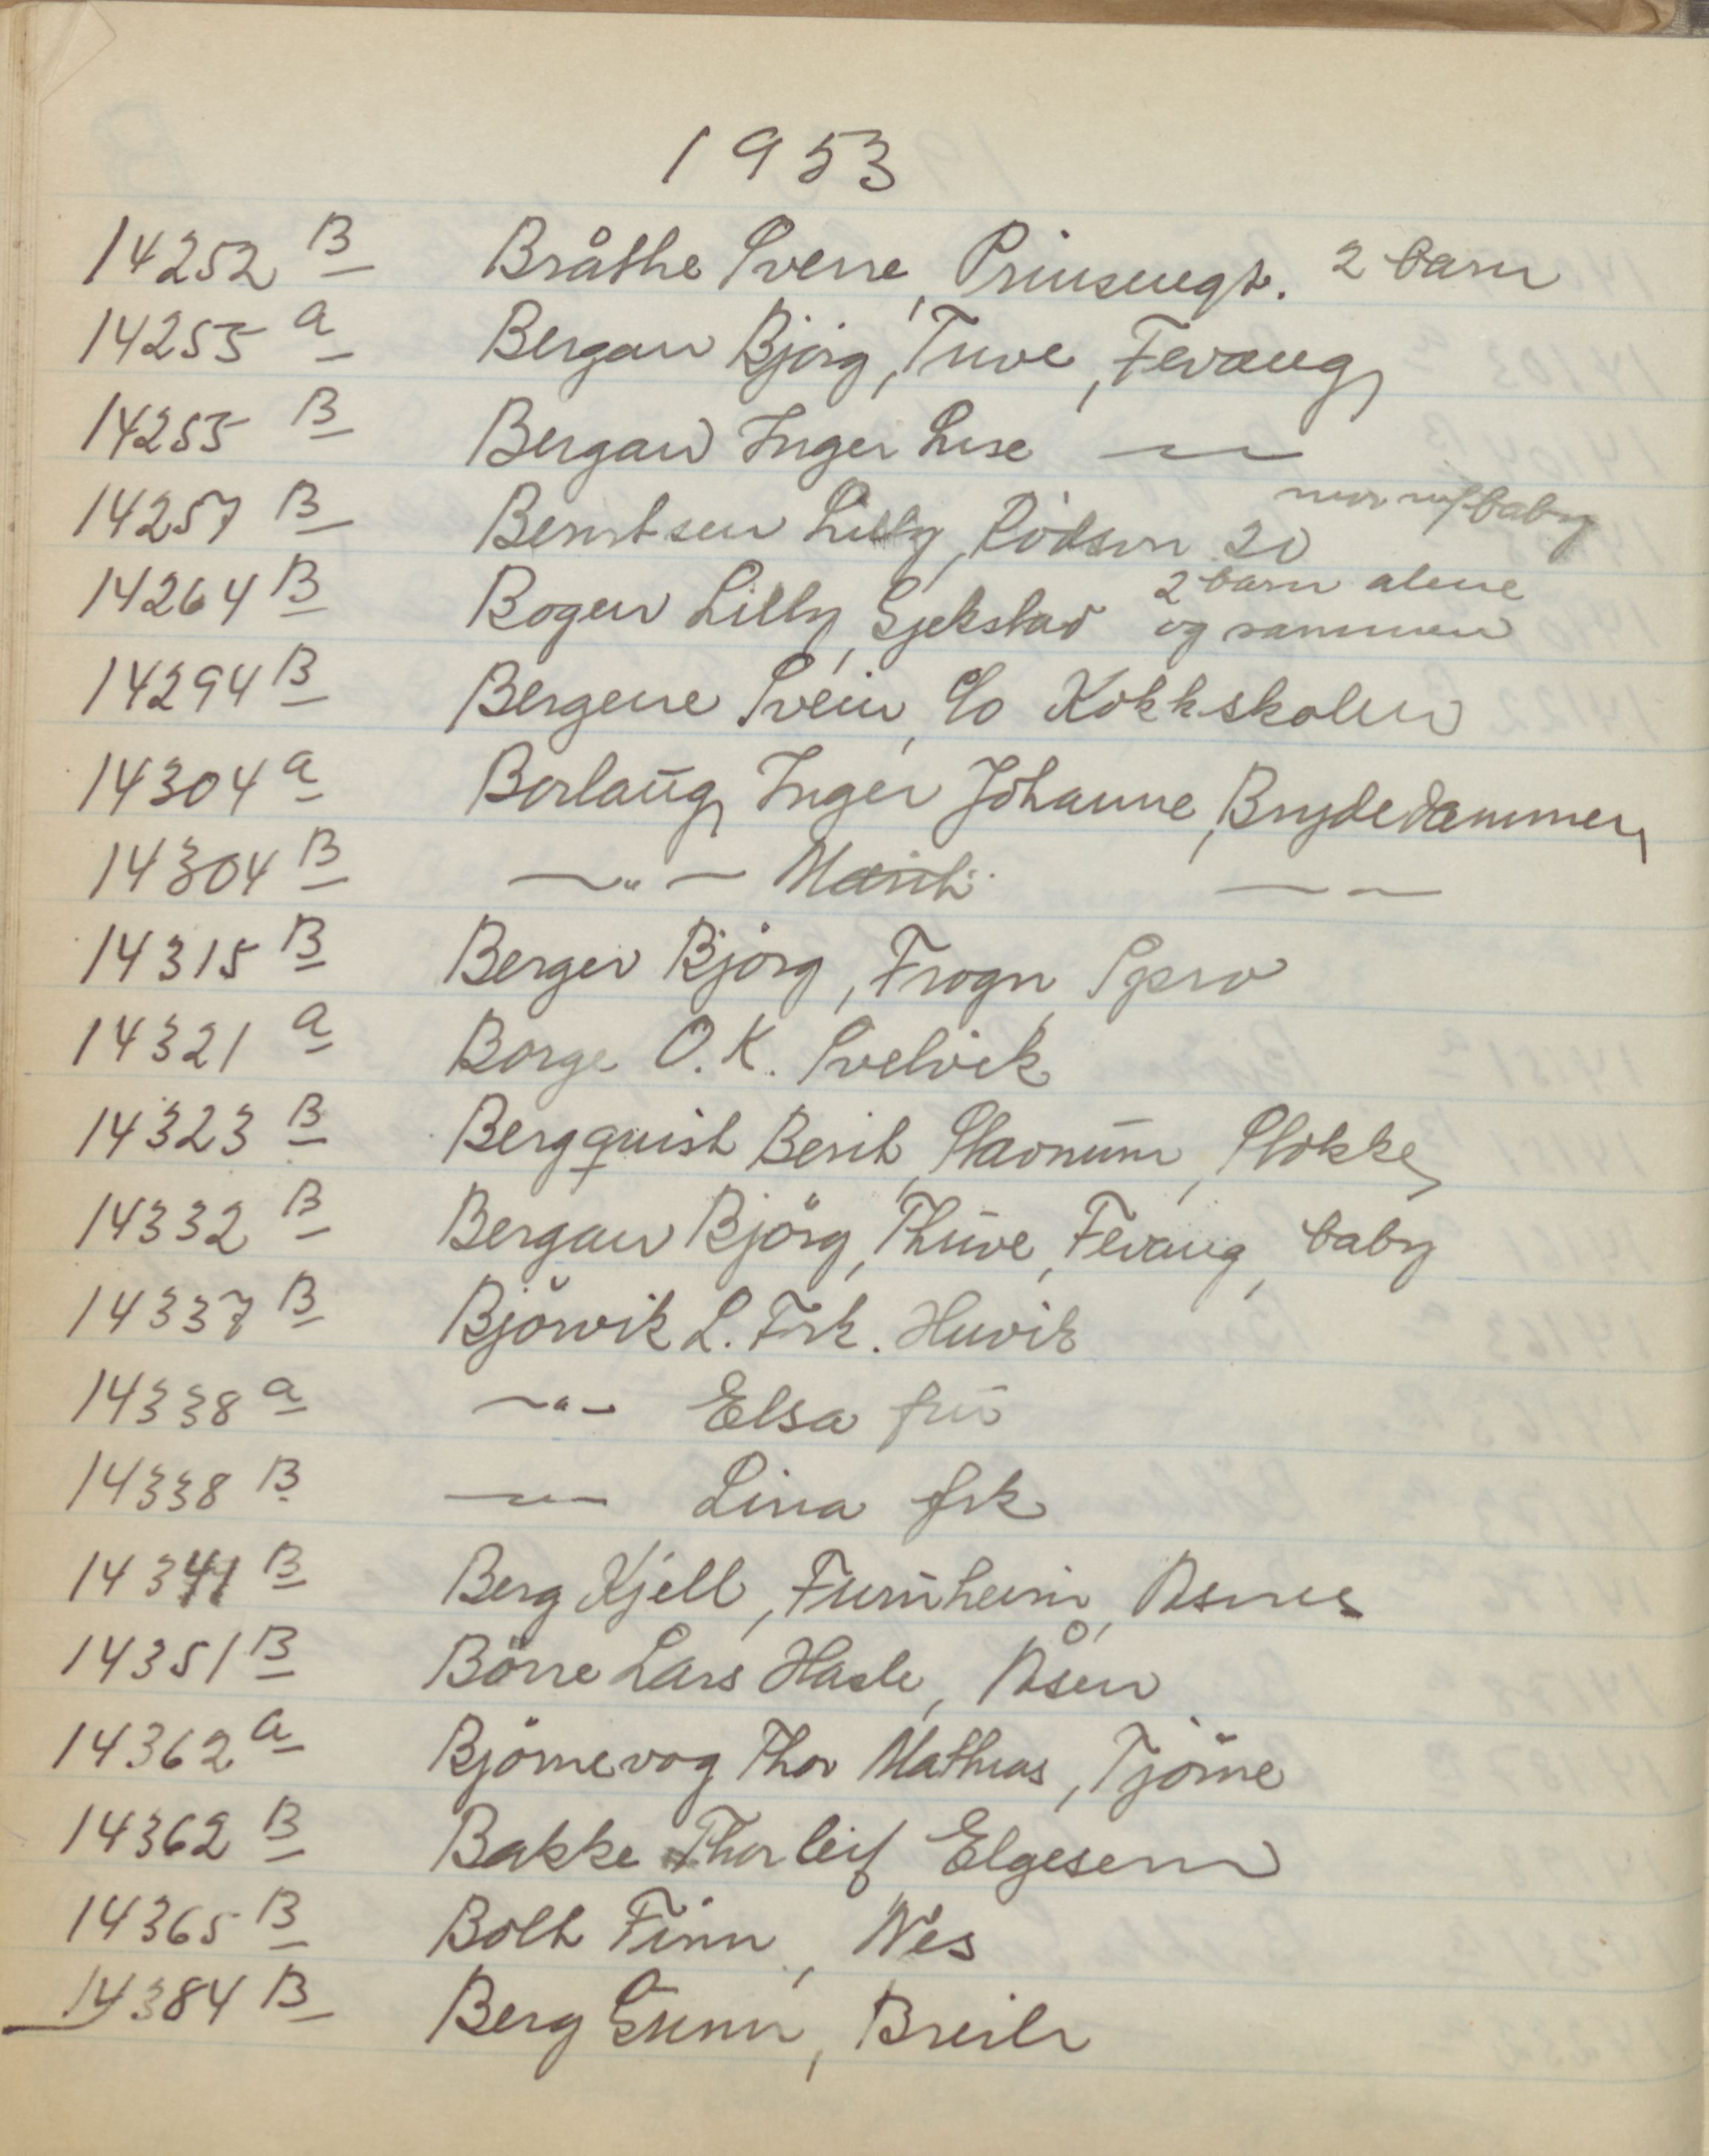 1953
14252 B Bråthe Sverre, Prinsensgt. 2 barn
14255 a Bergan Bjørg, Tuve, Fevang
14255 B Bergan Inger Lise —"—
mor m/baby
14257 B Berntsen Lilly, Rödsvn 20
2 barn alene
14264 B Bogen Lilly, Gjekstad og sammen
14294 B Bergene Svein, c/o Kokkskolen
14304 a Borlaug Inger Johanne, Brydedammen
14304 B —"— Marit —"—
14315 B Berger Bjørg, Frogn
14321 a Borge O.K. Svelvik
14323 B Bergquist Berit, Stavnum, Stokke
14332 B Bergan Bjørg, Thuve, Fevang, baby
14337 B Björvik L. Frk. Huvik
14338 a —"— Elsa fru
14338 B —"— Lina frk
14341 B Berg Kjell, Furuheim, Åsnes
14351 B Börre Lars Hasle, Åsen
14362 a Björnevog Thor Mathias, Tjöme
14362 B Bakke Thorleif Elgesem
14365 B Bolt Finn, Nes
14384 B Berg Gunn, Breili